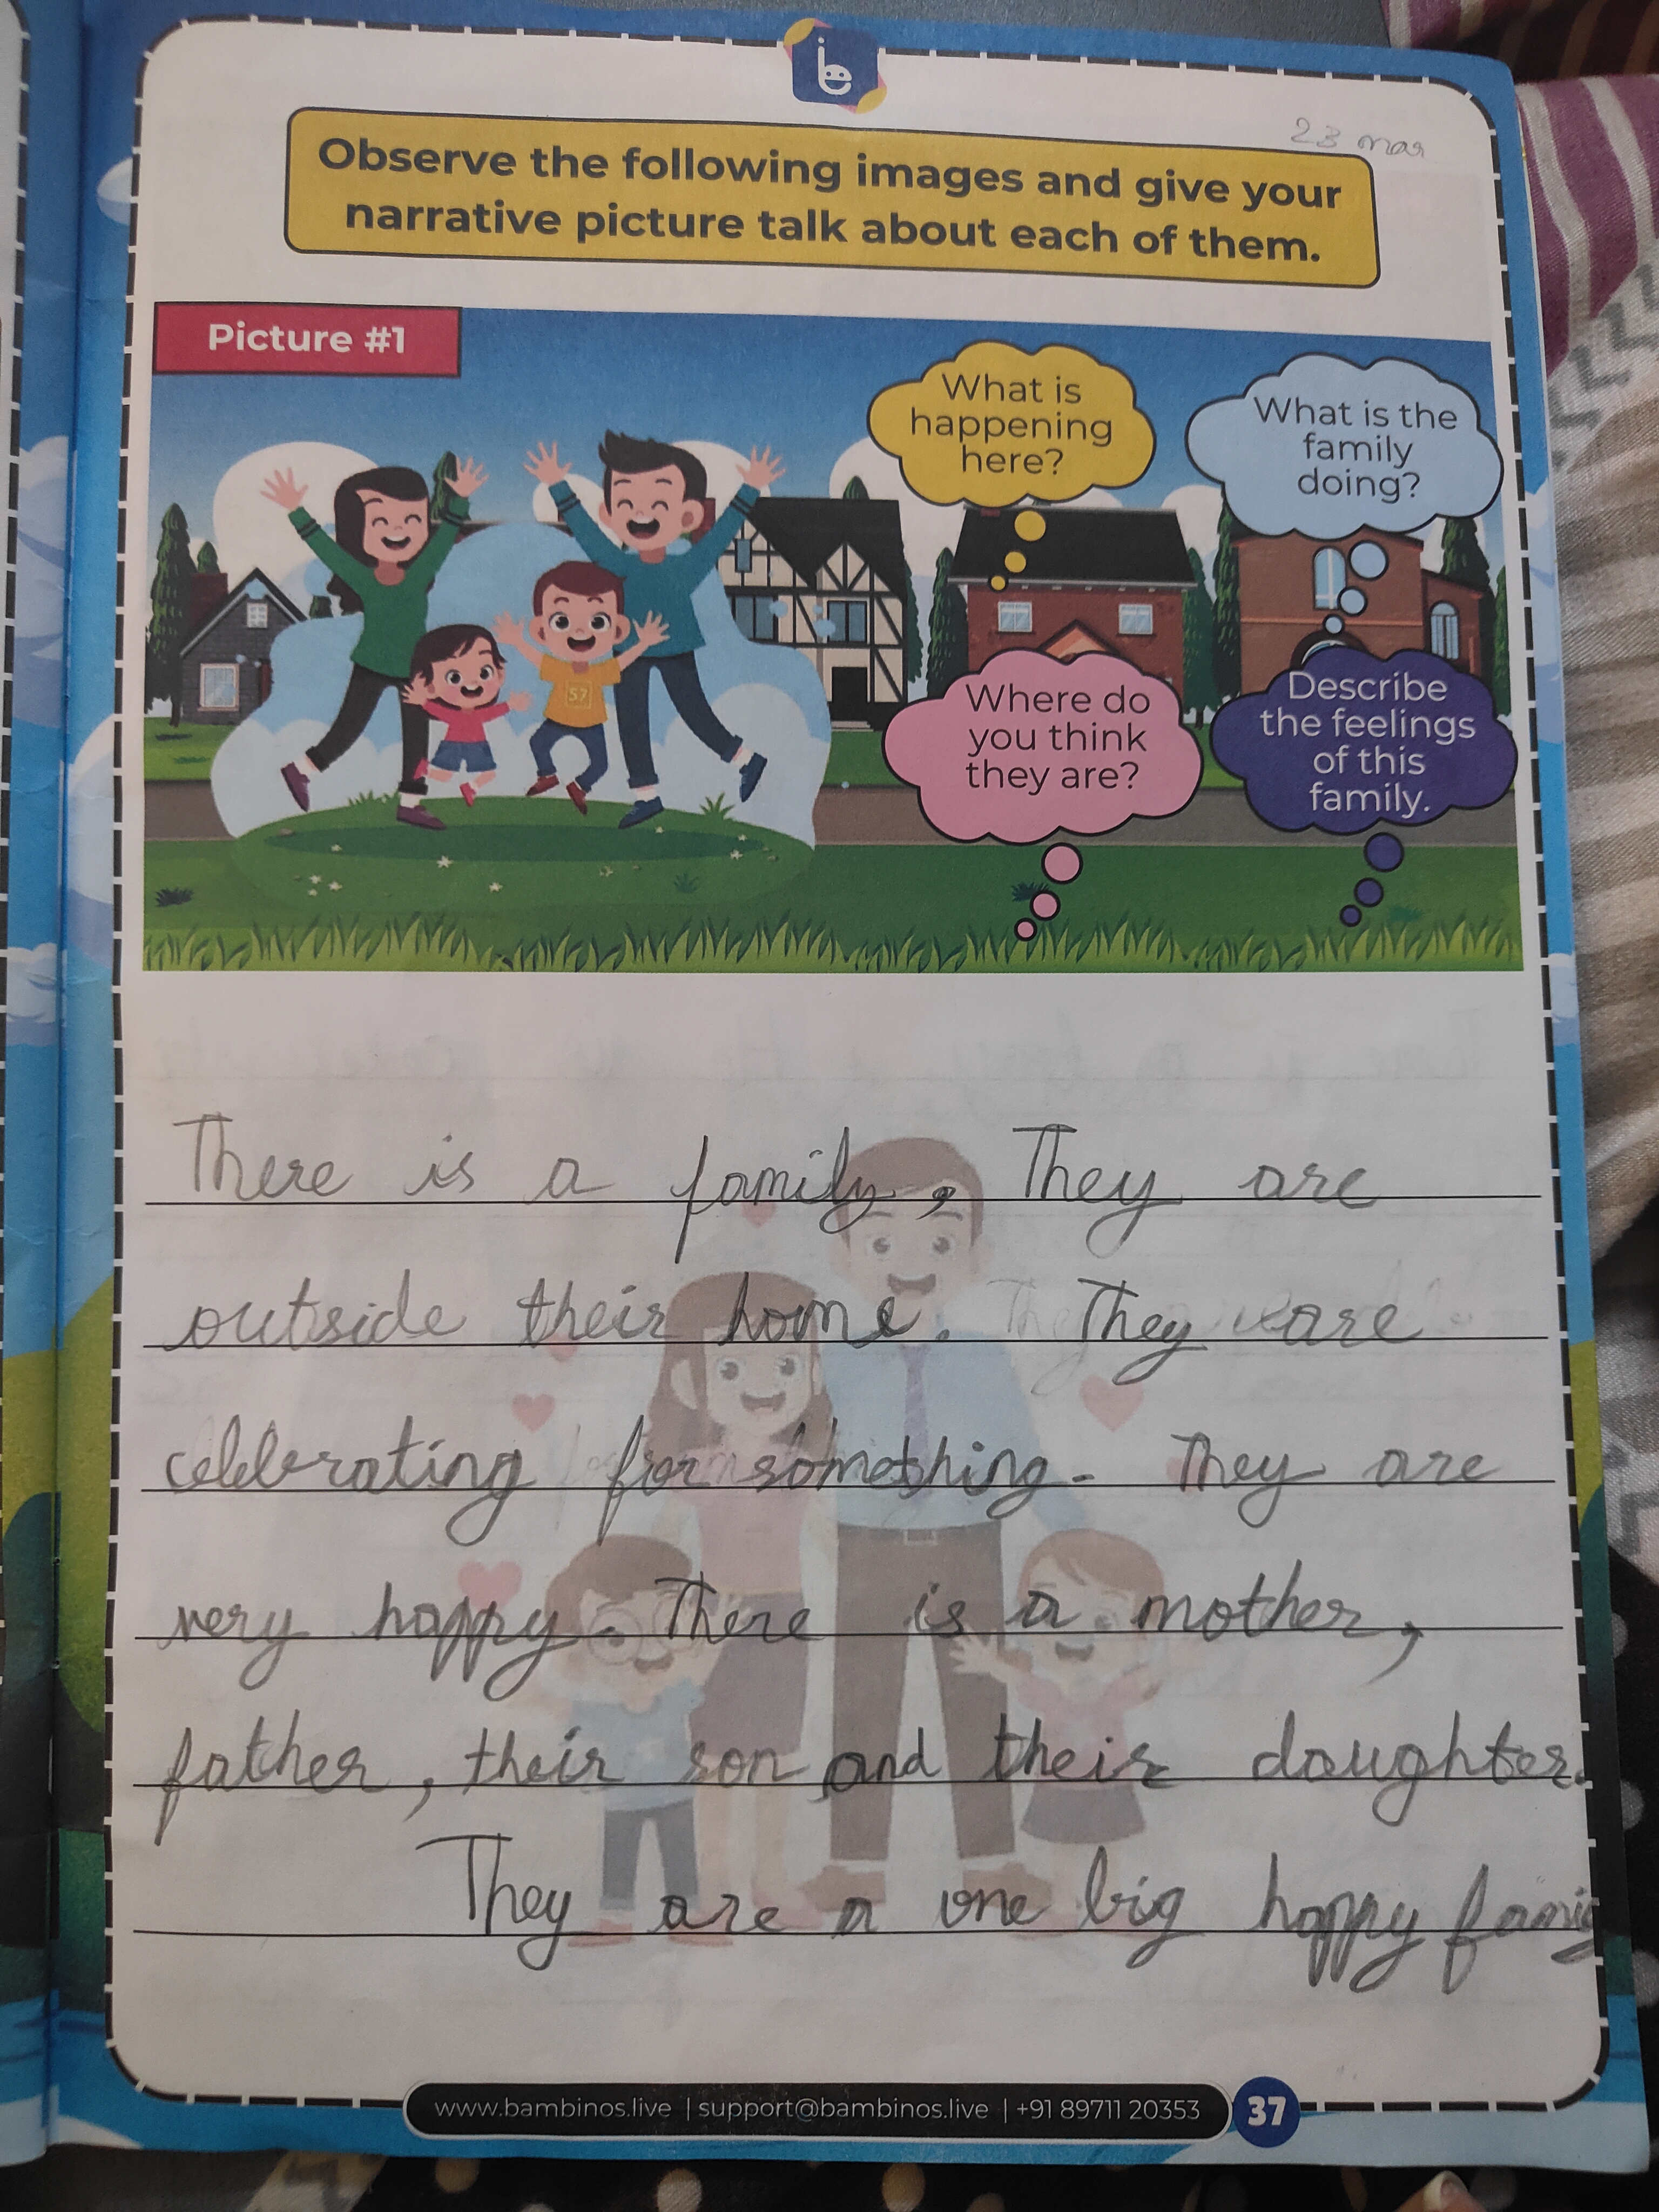 be
23 mar
Observe the following images and give your
narrative picture talk about each of them.
Picture #1
What is
happening
here?
What is the
family
doing?
57
Where do
you think
they are?
Describe
the feelings
of this
family.
There is a family, They are
outside their home. They are
celebrating for something. They are
very happy. There is a mother,
father, their son and their daughter.
They are a one big happy family
www.bambinos.live | support@bambinos.live | +91 89711 20353
37